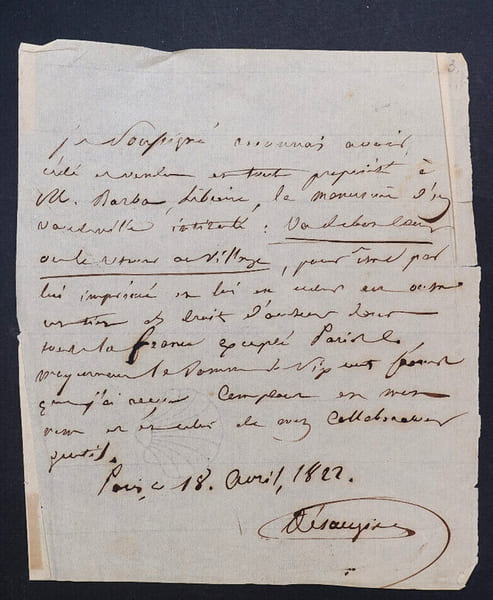 je soussigné reconnais avoir
cédé et vendu en toute propriété à
M. Barba, Libraire, le manuscrit d'un
vaudeville intitulé :
ou le retour au Village, pour être par
lui imprimé et lui en céder en outre
et droit d'auteur dans
toute la france excepté Paris
moyennant la Somme de Six cent francs
que j'ai reçue Comptant en mon
nom et en celui de mes Collaborateurs
Paris, ce 18. Avril, 1822.
Désaugiers